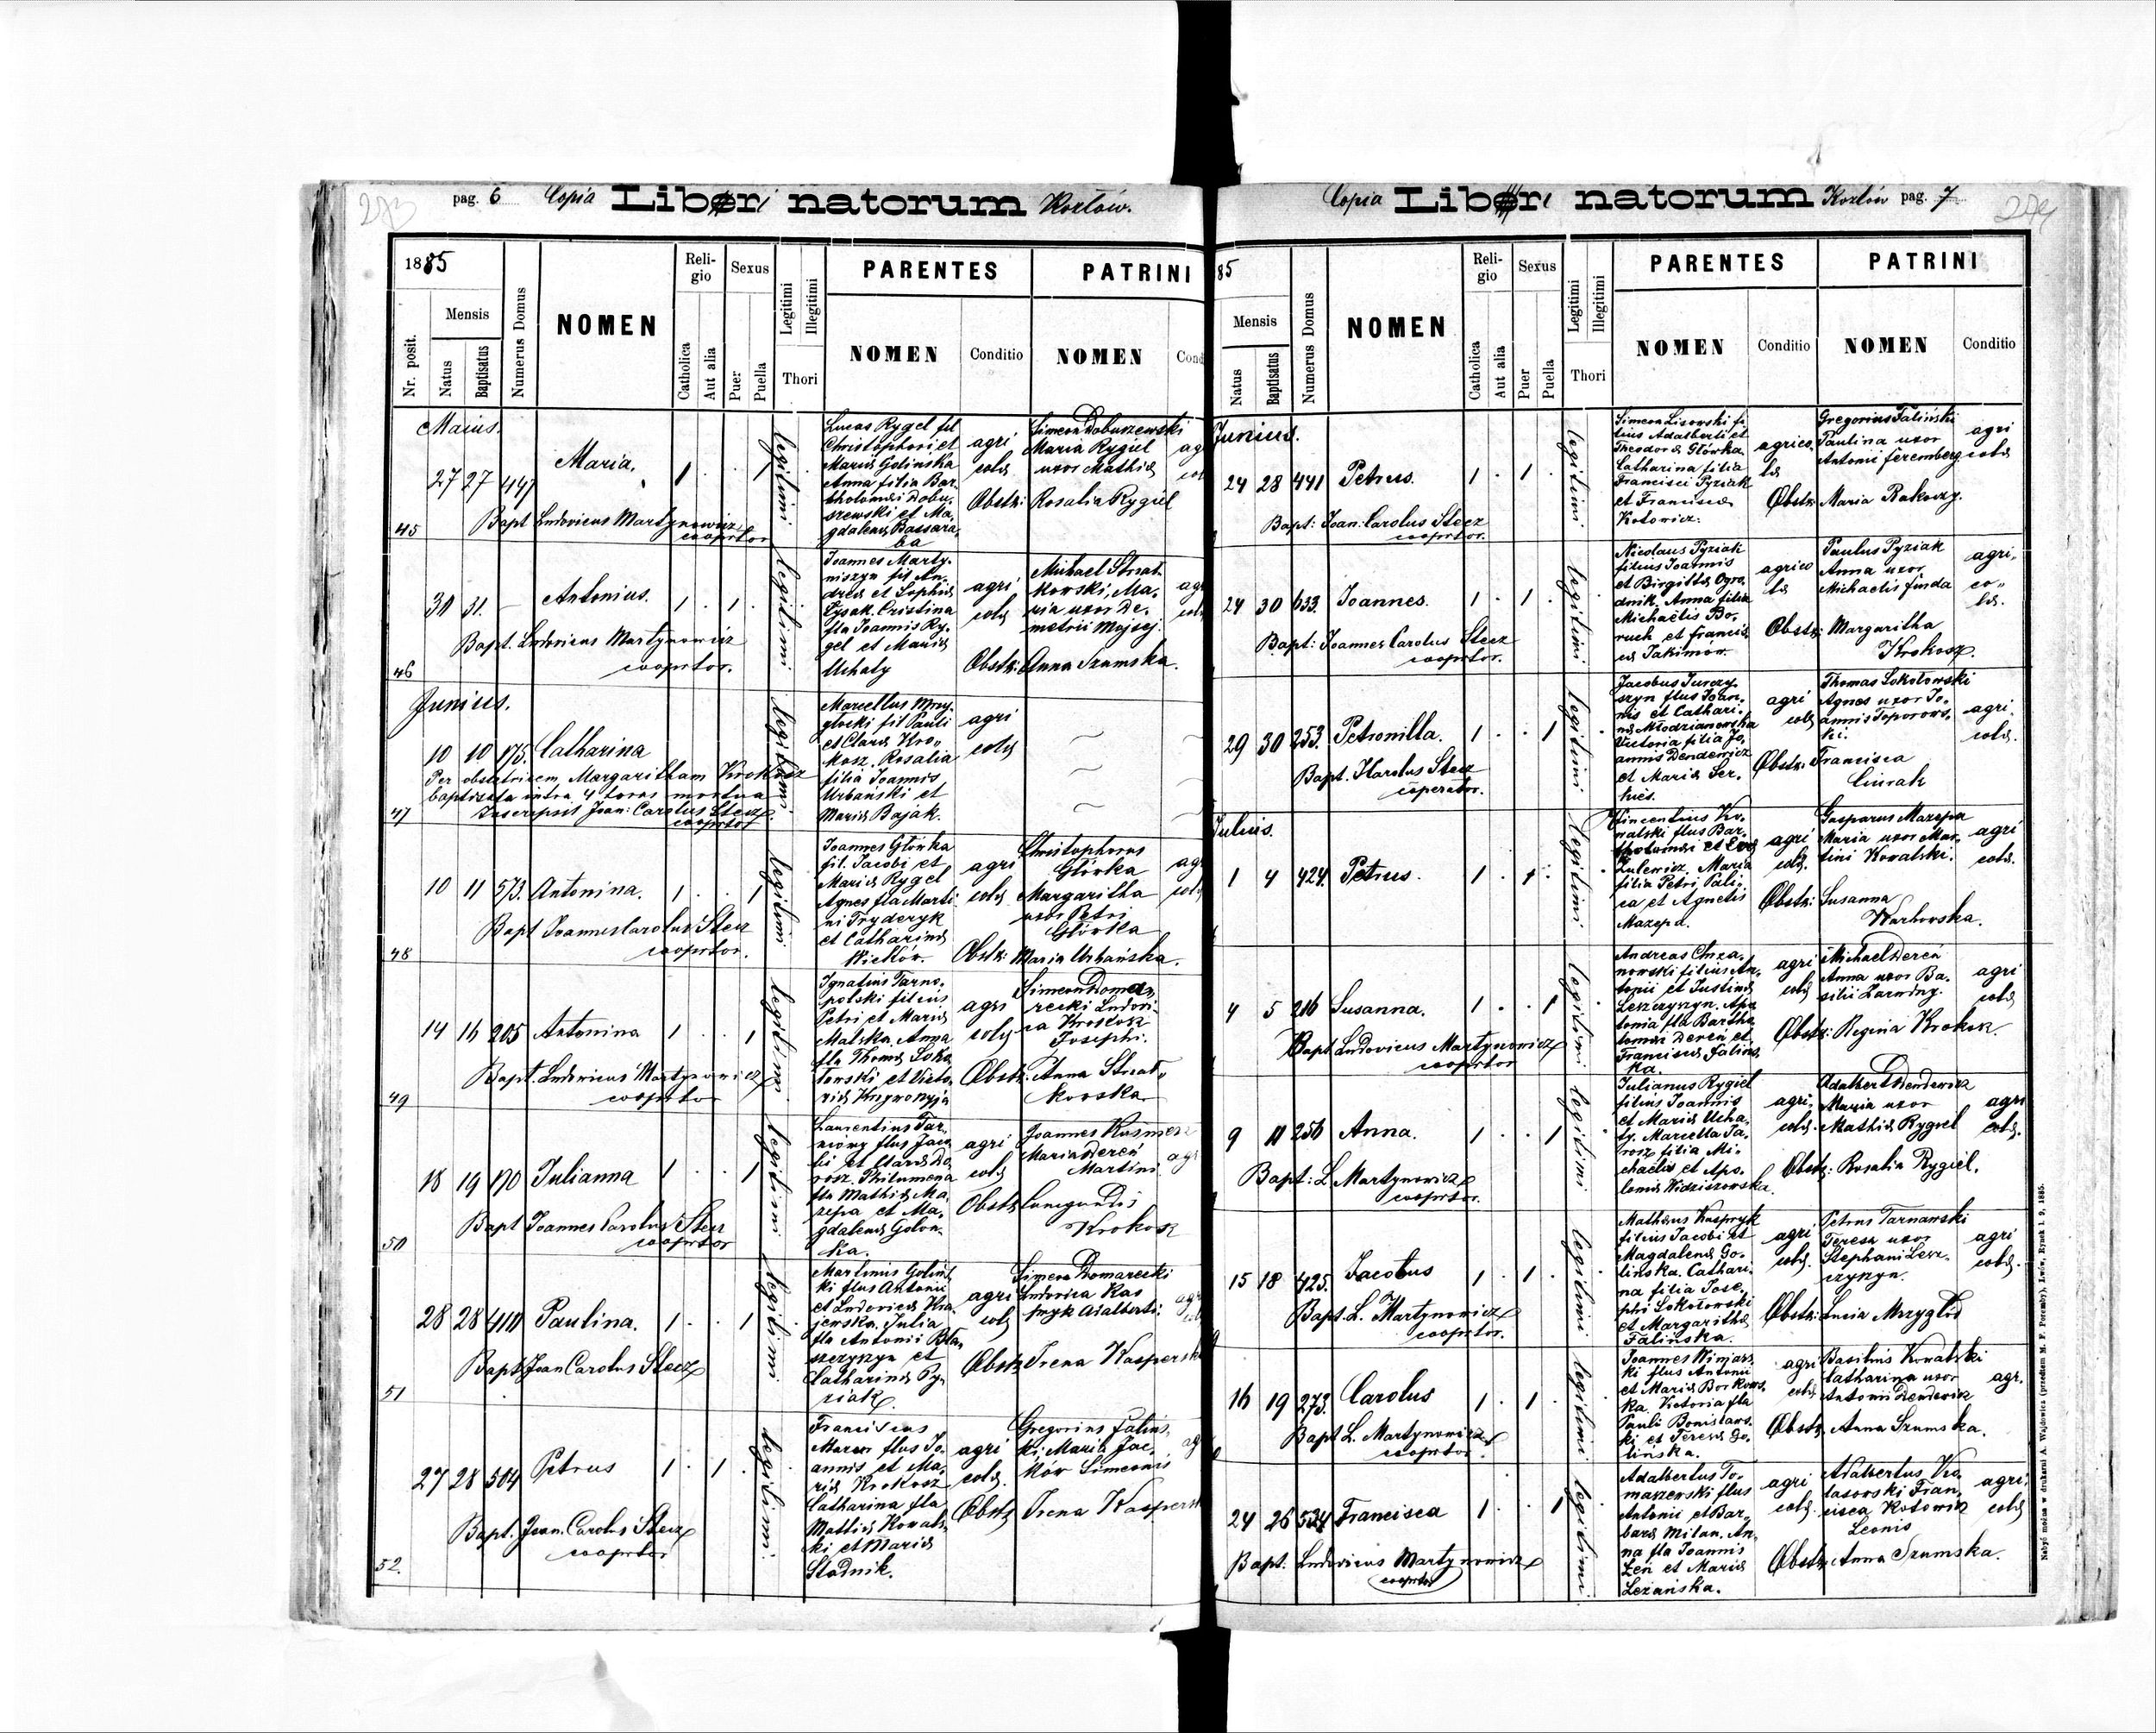 273
pag. 6 Copia Libri natorum Kozłów.
1885
Nr. posit.
Mensis
Natus
Baptisatus
Numerus Domus
NOMEN
Religio
Catholica
Aut alia
Sexus
Puer
Puella
Legitimi
Illegitimi
Thori
PARENTES
NOMEN
Conditio
PATRINI
NOMEN
Cond
Maius.
45
27 27 447
Maria.
1 . . 1
legitimi
Lucas Rygel fil
Christophori et
Mariæ Golinska
Anna filia Bar
tholomæi Dobu
szewski et Ma
gdalenæ Bassara
ba
agri
colæ
Simeon Dobuszewski
Maria Rygiel
uxor Mathiæ
Obstr: Rosalia Rygiel
Bapt Ludovicus Martynowicz
cooprtor
46
30 31. –
Antonius.
1 . 1 .
legitimi
Joannes Marty
niszyn fil An
dreæ et Sophiæ
Łysak. Cristina
fla Joannis Ry
gel et Mariæ
Uchaty
agri
colæ
Michael Strat
kowski, Ma
ria uxor De
metrii Mojsej.
Obstr: Anna Szumska.
Bapt. Ludovicus Martynowicz
cooprtor.
Junius.
47
10 10 175. Catharina
legitimi
Marcellus Mrzy
głocki fil Pauli
et Claræ Kro
kosz. Rosalia
filia Joannis
Urbański et
Mariæ Bajak.
agri
colæ
Per obstetricem Margaritham Krokosz
baptizata intra 4 horas mortua
Inscripsit Joan: Carolus Stecz
cooprtor
48
10 11 573. Antonina.
1 . . 1
legitimi
Joannes Głowka
fil. Jacobi et
Mariæ Rygel
Agnes fla Marti
ni Fryderyk
et Catharinæ
Wickór.
agri
colæ
Christophorus
Głowka
Margaritha
uxor Petri
Głowka
Obstr: Maria Urbańska.
Bapt Joannes Carolus Stecz
cooprtor.
49
14 16 205 Antonina
1 . . 1
legitimi
Ignatius Tarno
polski filius
Petri et Mariæ
Malska. Anna
fla Thomæ Soko
łowski et Victo
riæ Krzywonyja
agri
colæ
Simeon Doma
recki Ludovi
ca Krokosz
Josephi.
Obstr. Anna Strat
kowska
Bapt. Ludovicus Martynowicz
cooprtor
50
18 19 170 Julianna
1 . . 1
legitimi
Laurentius Tar
niowy flus Jaco
bi et Claræ Do
rosz. Philumena
fla Mathiæ Ma
zepa et Ma
gdalenæ Golon
ka.
agri
colæ
Joannes Kuśmierz
Maria Dereń
Martini
Obstr Cunegundis
Krokosz
Bapt Joannes Carolus Stecz
cooprtor
51
28 28 410 Paulina.
1 . . 1
legitimi
Martinus Golińs
ki flus Antonii
et Ludovicæ Kra
jewska. Julia
fla Antonii Bła
szczyszyn et
Catharinæ Py
ziak
agri
colæ
Simeon Domarecki
Ludovica Kas
pryk Adalberti.
Obstr Irena Kaspersk
Bapt Joan Carolus Stecz
52.
27 28 504 Petrus
1 . 1 .
legitimi
Franciscus
Mazur flus Jo
annis et Ma
riæ Krokosz
Catharina fla
Mathiæ Kowals
ki et Mariæ
Stodnik.
agri
colæ.
Gregorius Falins
ki, Maria Jac
ków Simeonis
Obstr Irena Kaspersk
Bapt. Joan. Carolus Stecz
cooprtor
Copia Libri natorum Kozłów pag. 7
274
85
Mensis
Natus
Baptisatus
Numerus Domus
NOMEN
Religio
Catholica
Aut alia
Sexus
Puer
Puella
Legitimi
Illegitimi
Thori
PARENTES
NOMEN
Conditio
PATRINI
NOMEN
Conditio
Junius.
24 28 441 Petrus.
1 . 1 .
legitimi
Simeon Lisowski fi
lius Adalberti et
Theodoræ Głowka
Catharina filia
Francisci Pyziak
et Franciscæ
Kotowicz.
agrico
læ
Gregorius Faliński
Paulina uxor
Antonii Feremberg
agri
colæ
Obstr: Maria Rakoczy.
Bapt: Joan: Carolus Stecz
cooprtor.
24 30 633. Joannes.
1 . 1 .
legitimi
Nicolaus Pyziak
filius Joannis
et Birgittæ Ogro
dnik. Anna filia
Michaelis Bo
ruch et Francis
cæ Jakimow.
agrico
læ
Paulus Pyziak
Anna uxor
Michaelis Funda
agri
co
læ.
Obstr: Margaritha
Krokosz.
Bapt: Joannes Carolus Stecz
cooprtor.
29 30 253. Petronilla.
1 . . 1
legitimi
Jacobus Jurczy
szyn flus Joan
nis et Cathari
næ Młodzianowska
Victoria filia Jo
annis Dendewicz
et Mariæ Ser
kies.
agri
colæ
Thomas Sokołowski
Agnes uxor Jo
annis Toporows
ki.
agri
colæ.
Obstr: Francisca
Ciurak
Bapt. Karolus Stecz
coperator.
Julius.
1 4 424. Petrus.
1 . 1 .
legitimi
Vincentius Ko
walski flus Bar
tholomæi et Evæ
Zulewicz. Maria
filia Petri Pali
ca et Agnetis
Mazepa.
agri
colæ.
Gasparus Mazepa
Maria uxor Mar
tini Kowalski.
agri
colæ.
Obstr: Susanna
Warhowska.
4 5 216 Susanna.
1 . . 1
legitimi
Andreas Chrza
nowski filius An
tonii et Justinæ
Leszczyszyn. Apo
lonia fla Bartho
lomæi Dereń et
Franciscæ Falins
ka.
agri
colæ
Michael Dereń
Anna uxor Ba
silii Zarwiny.
agri
colæ
Obstr: Regina Krokosz
Bapt Ludovicus Martynowicz
cooprtor
9 11 256 Anna.
1 . . 1
legitimi
Julianus Rygiel
filius Joannis
et Mariæ Ucha
ty. Marcella Ja
rosz filia Mi
chaelis et Apo
loniæ Widziszowska.
agri
colæ.
Adalbert Dendewicz
Maria uxor
Mathiæ Rygiel
agri
colæ.
Obstr: Rosalia Rygiel.
Bapt: L Martynowicz
cooprtor.
15 18 425. Jacobus
1 . 1 .
legitimi
Mathæus Kaspryk
filius Jacobi et
Magdalenæ Go
lińska. Cathari
na filia Jose
phi Sokołowski
et Margarithæ
Falińska.
agri
colæ.
Petrus Tarnawski
Teresa uxor
Stephani Lesz
czyszyn.
agri
colæ.
Obstr: Lucia Mrzygłód
Bapt. L. Martynowicz
cooprtor.
16 19 273. Carolus
1 . 1 .
legitimi
Joannes Winjars
ki flus Antonii
et Mariæ Borkows
ka. Victoria fla
Pauli Bonisław
ki et Teresæ Go
lińska.
agri
colæ
Basilius Kowalski
Catharina uxor
Antonii Dendewicz
agr.
Obstr. Anna Szumska.
Bapt L. Martynowicz
cooprtor.
24 26 534 Francisca
1 . . 1
legitimi
Adalbertus To
maszewski flus
Antonii et Bar
baræ Milan. An
na fla Joannis
Zeń et Mariæ
Leżańska.
agri
colæ.
Adalbertus Ko
Fran
cisca Kotowicz
Leonis
agri
colæ
Obstr. Anna Szumska.
Bapt. Ludovicus Martynowicz
cooprtor
Nabyć można w drukarni A. Wajdowicza (przedtem M. F. Poremby), Lwów, Rynek l. 9, 1885.